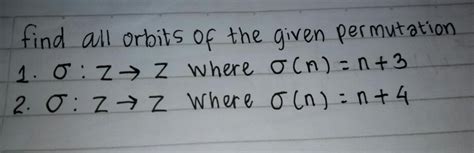 find all orbits of the given permutation
1. σ : Z → Z where σ(n) = n+3
2. σ : Z → Z where σ(n) = n+4